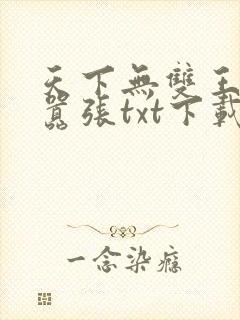 天下無雙王
囂張txt下載
一念染癮